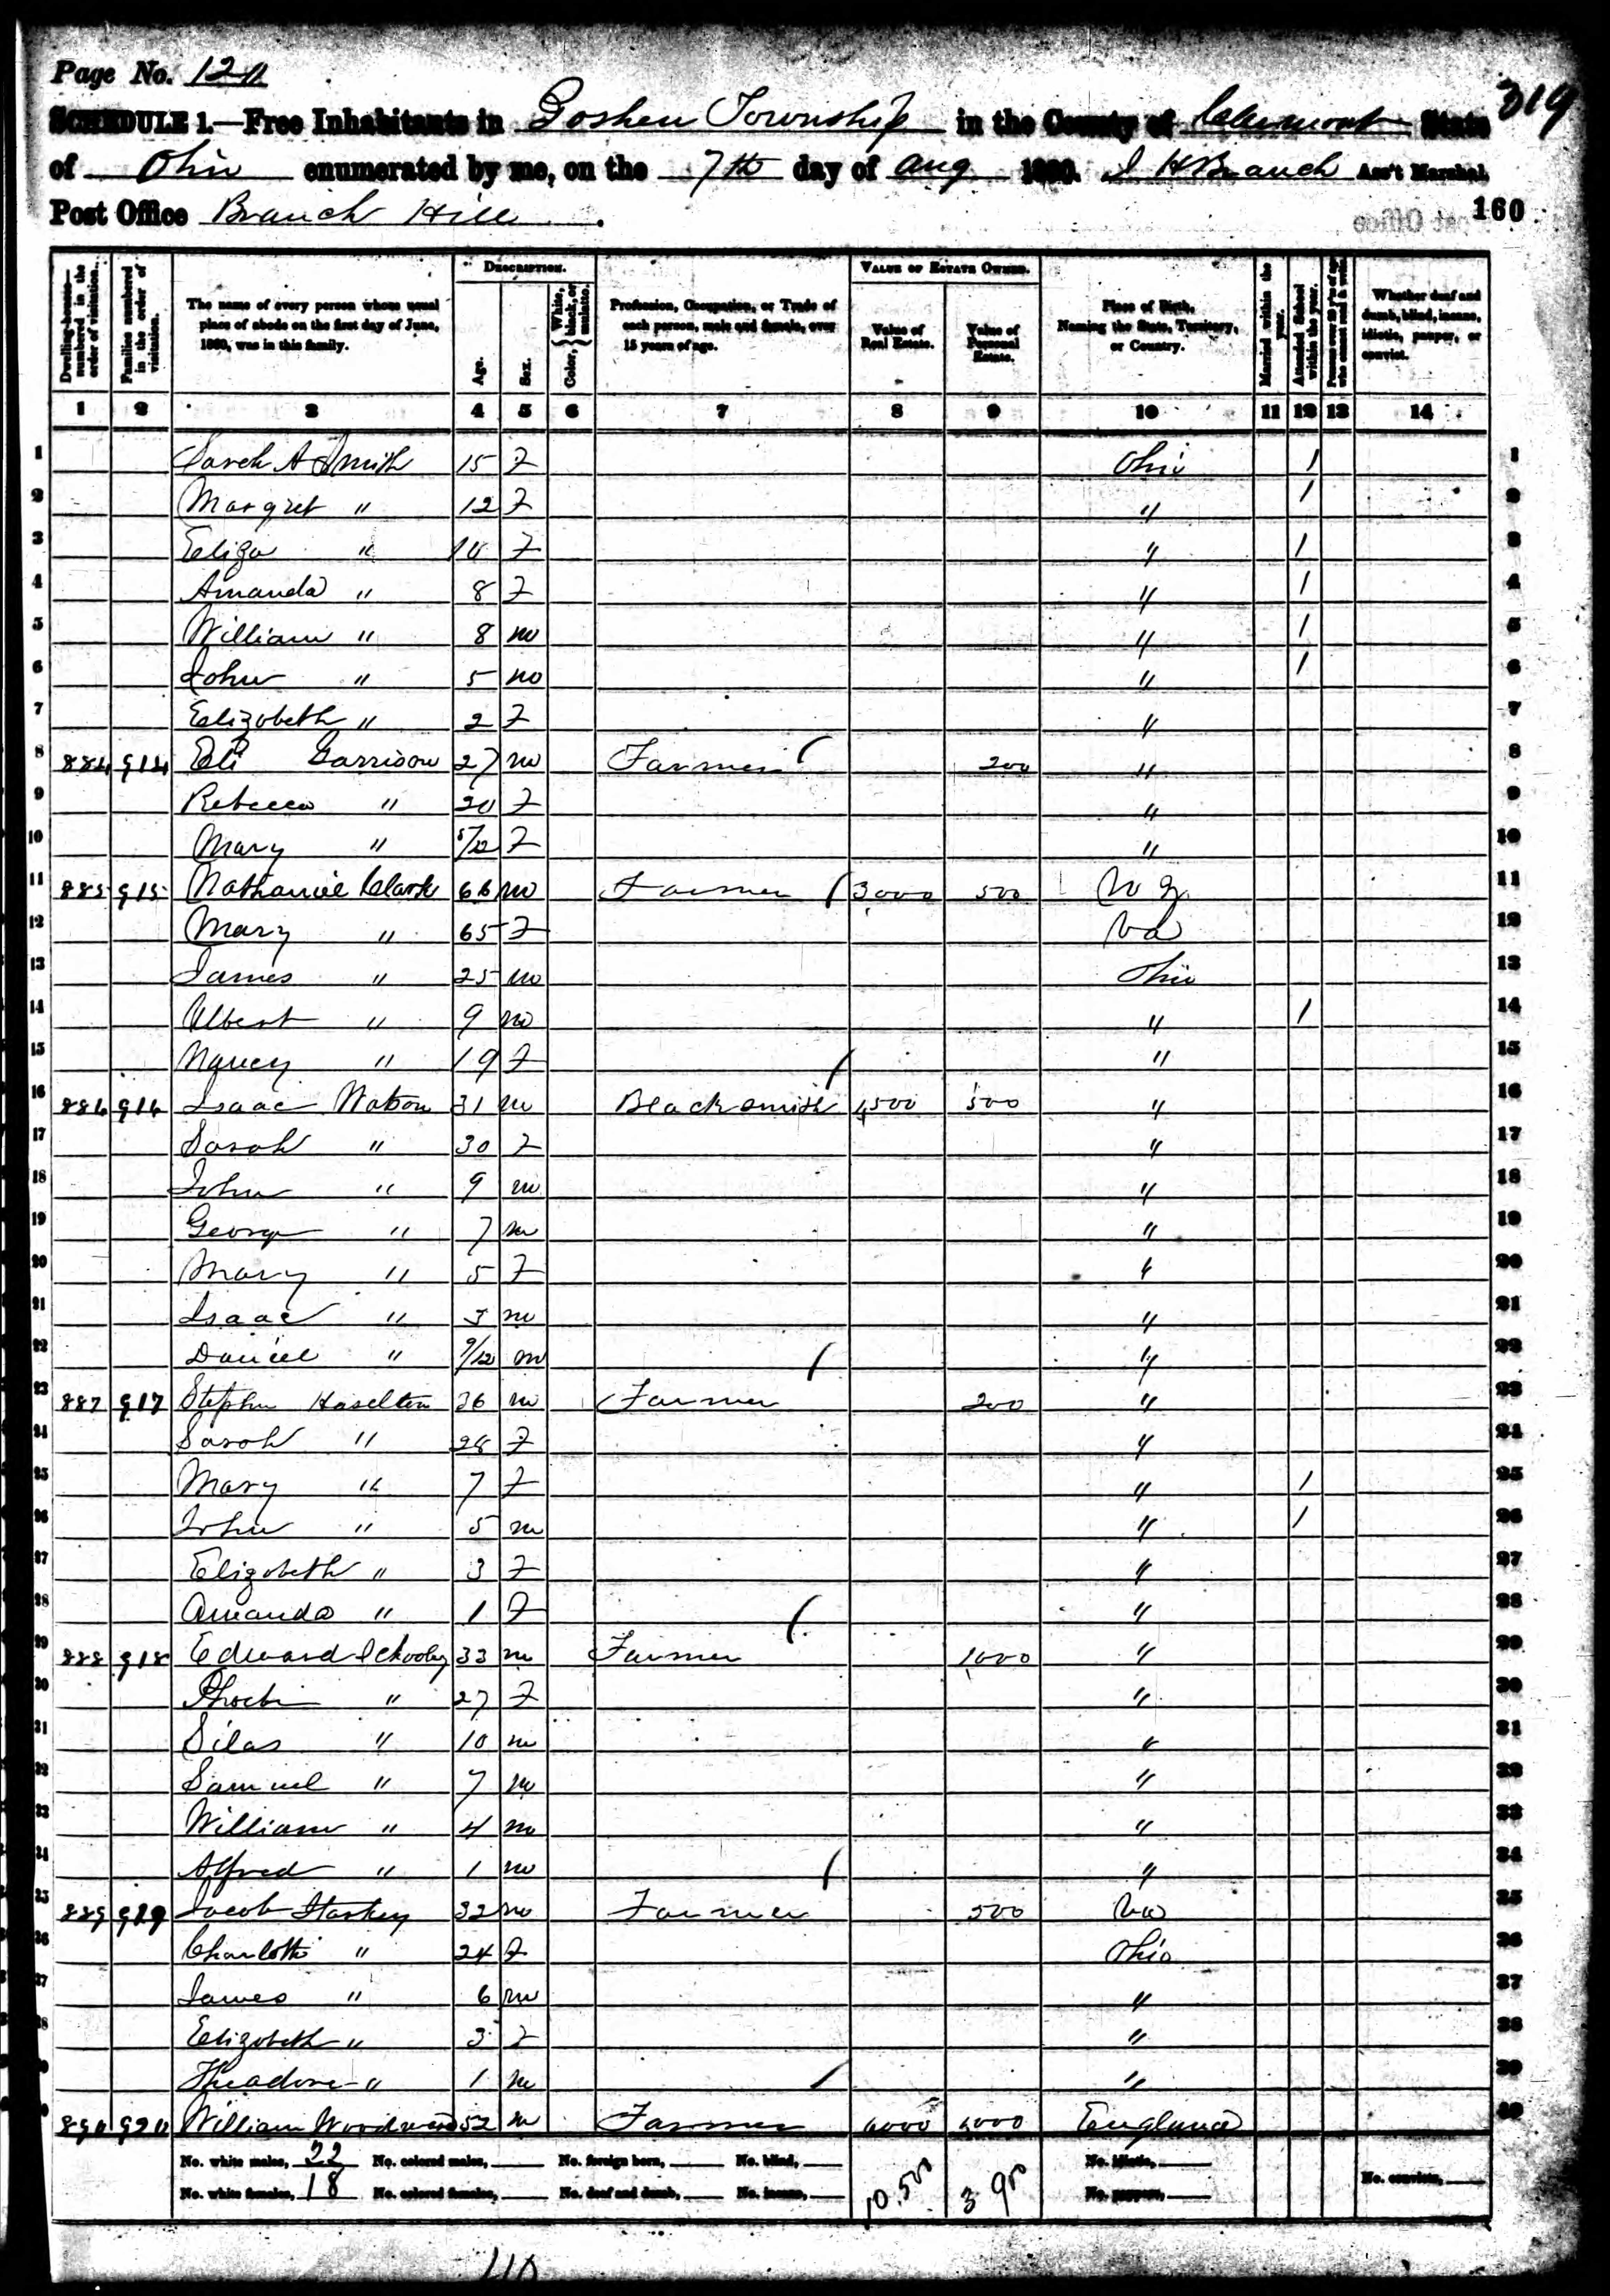 Page No. 120
319
SCHEDULE 1.—Free Inhabitants in Goshen Township in the County of Clermont State
of Ohio enumerated by me, on the 7th day of Aug 1860. J H Branch Ass't Marshal.
Post Office Branch Hill.
160
Dwelling-houses—numbered in the order of visitation.
Families numbered in the order of visitation.
The name of every person whose usual place of abode on the first day of June, 1860, was in this family.
DESCRIPTION.
Age.
Sex.
Color, { White, black, or mulatto.
Profession, Occupation, or Trade of each person, male and female, over 15 years of age.
VALUE OF ESTATE OWNED.
Value of Real Estate.
Value of Personal Estate.
Place of Birth, Naming the State, Territory, or Country.
Married within the year.
Attended School within the year.
Persons over 20 y'rs of age who cannot read & write.
Whether deaf and dumb, blind, insane, idiotic, pauper, or convict.
1 2 3 4 5 6 7 8 9 10 11 12 13 14
1 Sarah A Smith 15 F Ohio 1 1
2 Margret " 12 F " 1 2
3 Eliza " 10 F " 1 3
4 Amanda " 8 F " 1 4
5 William " 8 m " 1 5
6 John " 5 m " 1 6
7 Elizabeth " 2 F " 7
8 884 914 Eli Garrison 27 m Farmer 200 " 8
9 Rebecca " 20 F " 9
10 Mary " 5/12 F " 10
11 885 915 Nathaniel Clark 66 m Farmer 3000 500 11
12 Mary " 65 F Va 12
13 James " 25 m Ohio 13
14 Albert " 9 m " 1 14
15 Nancy " 19 F " 15
16 886 916 Isaac Watson 31 m Blacksmith 500 " 16
17 Sarah " 30 F " 17
18 John " 9 m " 18
19 George " 7 m " 19
20 Mary " 5 F " 20
21 Isaac " 3 m " 21
22 Daniel " 9/12 m " 22
23 887 917 Stephen Haselton 36 m Farmer 200 " 23
24 Sarah " 28 F " 24
25 Mary " 7 F " 1 25
26 John " 5 m " 1 26
27 Elizabeth " 3 F " 27
28 Amanda " 1 F " 28
29 888 918 Edward Schooley 33 m Farmer 1000 " 29
30 Phoebe " 27 F " 30
31 Silas " 10 m " 31
32 Samuel " 7 m " 32
33 William " 4 m " 33
34 Alfred " 1 m " 34
35 889 919 Jacob Starkey 32 m Farmer 500 Va 35
36 Charlotte " 24 F Ohio 36
37 James " 6 m " 37
38 Elizabeth " 3 F " 38
39 Theadore " 1 m " 39
40 890 920 William Woodward 52 m Farmer England 40
No. white males, 22 No. colored males, No. foreign born, No. blind, No. idiotic,
No. white females, 18 No. colored females, No. deaf and dumb, No. insane, No. paupers, No. convicts,
10.500 3900